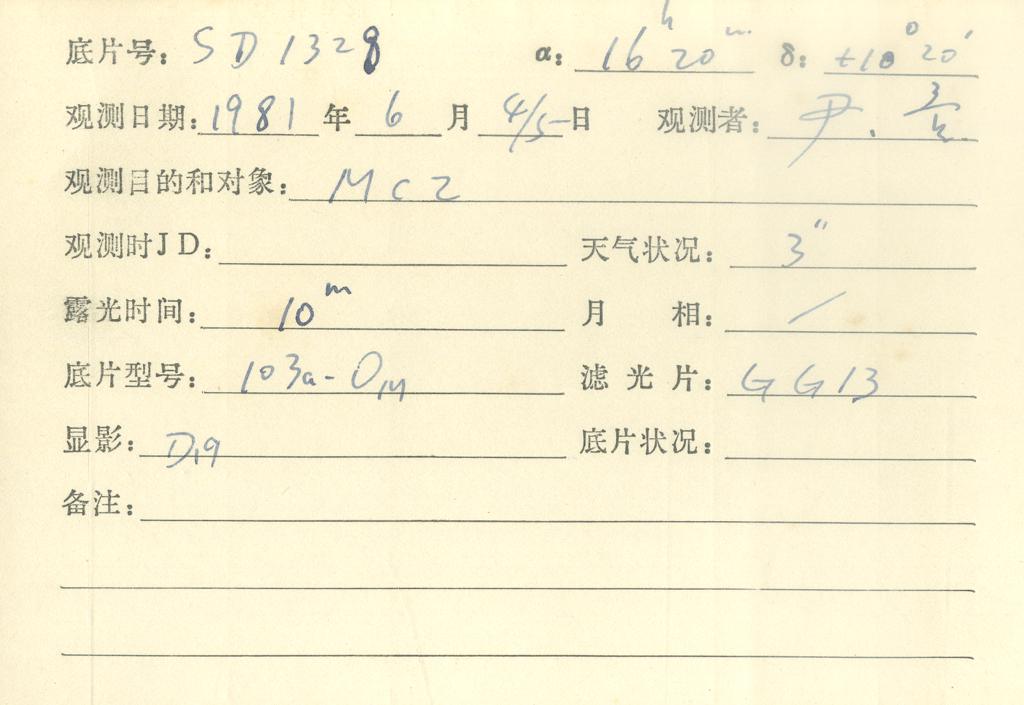 底片号: SD1328 α: 16ʰ20ᵐ δ: +10°20′
观测日期: 1981 年 6 月 4/5 日 观测者: 尹.
观测目的和对象: MCZ
观测时JD: 天气状况: 3″
露光时间: 10ᵐ 月 相: /
底片型号: 103a-O 滤光片: GG13
显影: D19 底片状况:
备注: